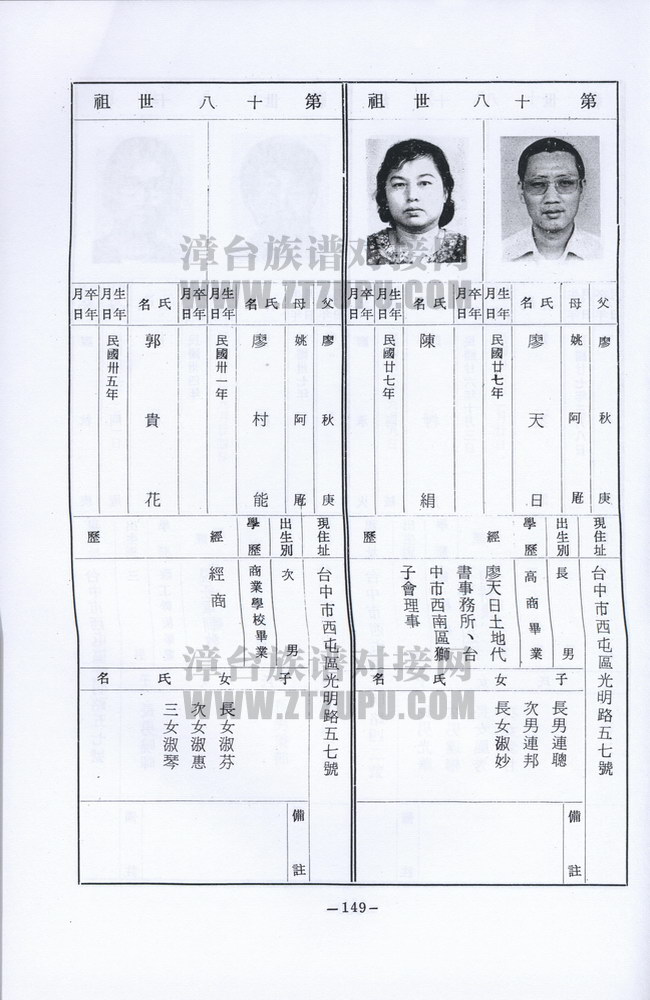 第十八世祖
父 廖秋庚
母 姚阿屘
氏名 廖天日
生年月日 民國廿七年
卒年月日
氏名 陳絹
生年月日 民國廿七年
卒年月日
現住址 台中市西屯區光明路五七號
出生別 長男
學歷 高商畢業
經歷
廖天日土地代
書事務所、台
中市西南區獅
子會理事
子女氏名
長男連聰
次男連邦
長女淑妙
備註
第十八世祖
父 廖秋庚
母 姚阿屘
氏名 廖村能
生年月日 民國卅一年
卒年月日
氏名 郭貴花
生年月日 民國卅五年
卒年月日
現住址 台中市西屯區光明路五七號
出生別 次男
學歷 商業學校畢業
經歷
經商
子女氏名
長女淑芬
次女淑惠
三女淑琴
備註
—149—
漳台族谱对接网
WWW.ZTZUPU.COM
漳台族谱对接网
WWW.ZTZUPU.COM